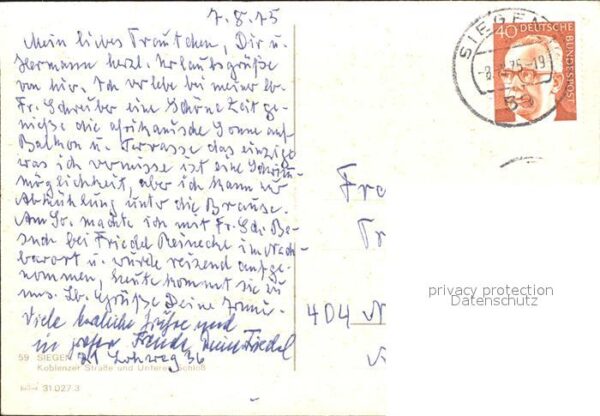 7.8.75
Mein liebes Trautchen, Dir u.
Hermann herzl. Urlaubsgrüße
von hier. Ich verlebe bei meiner lb.
Fr. Schreiber eine schöne Zeit ge-
nieße die afrikanische Sonne auf
Balkon u. Terrasse das einzige
was ich vermisse ist eine Schwimm-
möglichkeit, aber ich kann zur
Abkühlung unter die Brause.
Am So. machte ich mit Fr. Sch. Be-
such bei Friedel Reinecke im Nach-
barort u. wurde reizend aufge-
nommen, heute kommt sie zu
uns. Lb. Grüße Deine
Viele herzliche Grüße und
in Freude Friedel
21 Lohweg 36
59 SIEGEN
Koblenzer Straße und Unteres Schloß
31.027-3
SIEGEN
-8.-75-19
59
40
DEUTSCHE
BUNDESPOST
Fra
Tr
404 N
privacy protection
Datenschutz